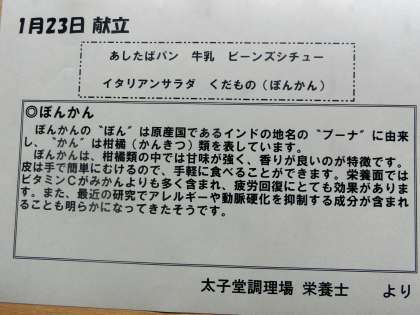 1月23日 献立
あしたばパン 牛乳 ビーンズシチュー
イタリアンサラダ くだもの（ぽんかん）
◎ぽんかん
ぽんかんの〝ぽん〟は原産国であるインドの地名の〝プーナ〟に由来
し、〝かん〟は柑橘（かんきつ）類を表しています。
ぽんかんは、柑橘類の中では甘味が強く、香りが良いのが特徴です。
皮は手で簡単にむけるので、手軽に食べることができます。栄養面では
ビタミンCがみかんよりも多く含まれ、疲労回復にとても効果がありま
す。また、最近の研究でアレルギーや動脈硬化を抑制する成分が含まれ
ることも明らかになってきたそうです。
太子堂調理場 栄養士 より